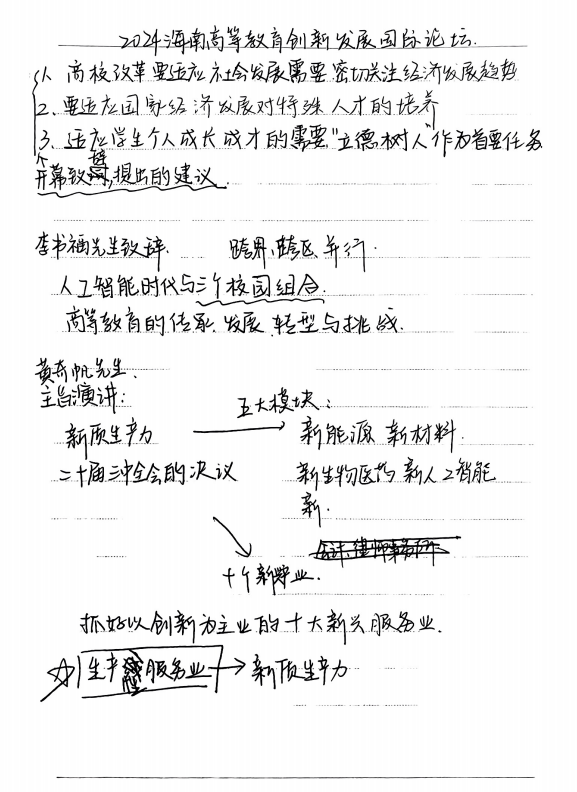 2024海南高等教育创新发展国际论坛.
1、高校改革要适应社会发展需要 密切关注经济发展趋势
2、要适应国家经济发展对特殊人才的培养
3、适应学生个人成长成才的需要"立德树人"作为首要任务
开幕致辞,提出的建议.
李书福先生致辞. 跨界、跨区、并行.
人工智能时代与三个校园组合.
高等教育的传承、发展、转型与挑战.
黄奇帆先生.
主旨演讲: 五大模块:
新质生产力 → 新能源 新材料.
二十届三中全会的决议 新生物医药 新人工智能
新.
十个新业.
抓好以创新为主业的十大新兴服务业.
☆ 生产型服务业 → 新质生产力